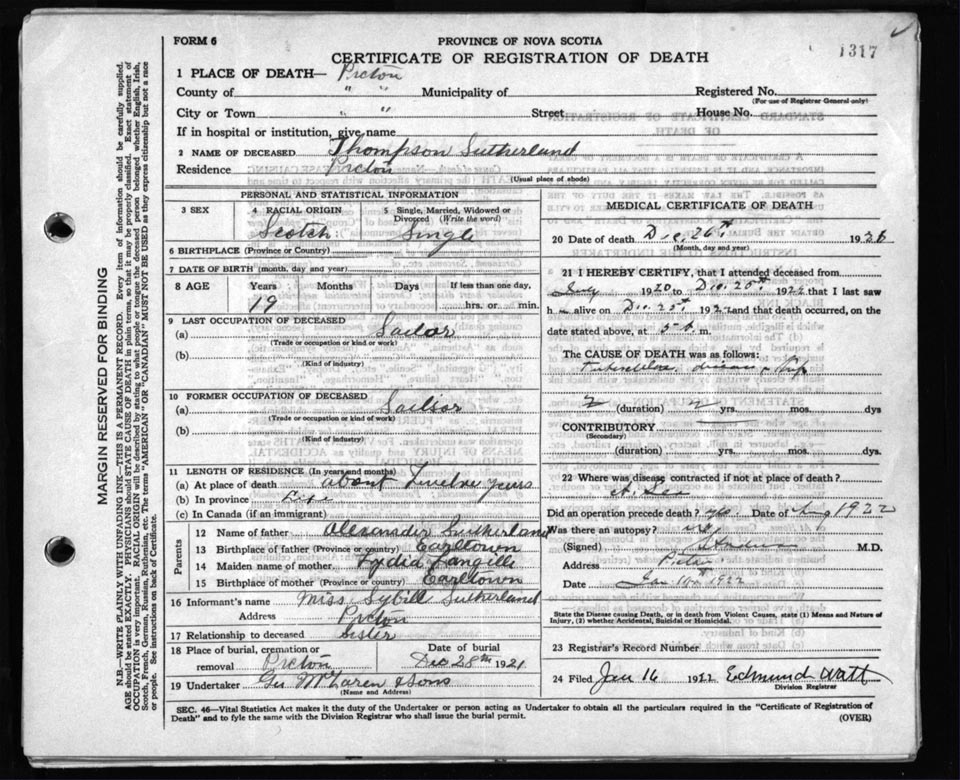 FORM 6
PROVINCE OF NOVA SCOTIA
1317
CERTIFICATE OF REGISTRATION OF DEATH
1 PLACE OF DEATH— Pictou
County of " " Municipality of Registered No.
(For use of Registrar General only)
City or Town " " Street House No.
If in hospital or institution, give name
2 NAME OF DECEASED Thompson Sutherland
Residence Pictou
(Usual place of abode)
PERSONAL AND STATISTICAL INFORMATION
3 SEX 4 RACIAL ORIGIN 5 Single, Married, Widowed or Divorced (Write the word)
Scotch Single
6 BIRTHPLACE (Province or Country)
7 DATE OF BIRTH (month, day and year)
8 AGE Years Months Days If less than one day,
19 hrs. or min.
9 LAST OCCUPATION OF DECEASED
(a) Sailor
(Trade or occupation or kind of work)
(b)
(Kind of industry)
10 FORMER OCCUPATION OF DECEASED
(a) Sailor
(Trade or occupation or kind of work)
(b)
(Kind of industry)
11 LENGTH OF RESIDENCE (In years and months)
(a) At place of death about Twelve years
(b) In province Life
(c) In Canada (if an immigrant)
Parents
12 Name of father Alexander Sutherland
13 Birthplace of father (Province or country) Earltown
14 Maiden name of mother Lydia Langille
15 Birthplace of mother (Province or country) Earltown
16 Informant's name Miss Sybill Sutherland
Address Pictou
17 Relationship to deceased Sister
18 Place of burial, cremation or removal Pictou
Date of burial
Dec 28th 1921
19 Undertaker Geo McLaren & Sons
(Name and Address)
MEDICAL CERTIFICATE OF DEATH
20 Date of death Dec. 26th 192
(Month, day and year)
21 I HEREBY CERTIFY, that I attended deceased from
July 1920 to Dec. 25th 192 that I last saw
h alive on Dec. 25th 192 and that death occurred, on the
date stated above, at 5 a m.
The CAUSE OF DEATH was as follows:
disease
2 (duration) yrs. mos. dys
CONTRIBUTORY
(Secondary)
(duration) yrs. mos. dys
22 Where was disease contracted if not at place of death?
At Sea
Did an operation precede death? Date of Aug 1922
Was there an autopsy? no
(Signed) M.D.
Address Pictou
Date Jan 1922
State the Disease causing Death, or in death from Violent Causes, state (1) Means and Nature of
Injury, (2) whether Accidental, Suicidal or Homicidal.
23 Registrar's Record Number
24 Filed Jan 16 1922 Edmund Watt
Division Registrar
SEC. 46—Vital Statistics Act makes it the duty of the Undertaker or person acting as Undertaker to obtain all the particulars required in the "Certificate of Registration of
Death" and to fyle the same with the Division Registrar who shall issue the burial permit.
(OVER)
MARGIN RESERVED FOR BINDING
N.B.—WRITE PLAINLY WITH UNFADING INK—THIS IS A PERMANENT RECORD. Every item of information should be carefully supplied.
AGE should be stated EXACTLY. PHYSICIANS should STATE CAUSE OF DEATH in plain terms, so that it may be properly classified. Exact statement of
OCCUPATION is very important. RACIAL ORIGIN will be described by stating to what people or tongue the deceased person belonged whether English, Irish,
Scotch, French, German, Russian, Ruthenian, etc. The terms "AMERICAN" OR "CANADIAN" MUST NOT BE USED as they express citizenship but not a race
or people. See instructions on back of Certificate.